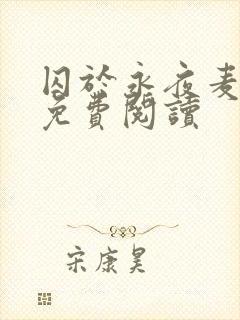 囚於永夜麦
免費閱讀
宋康昊